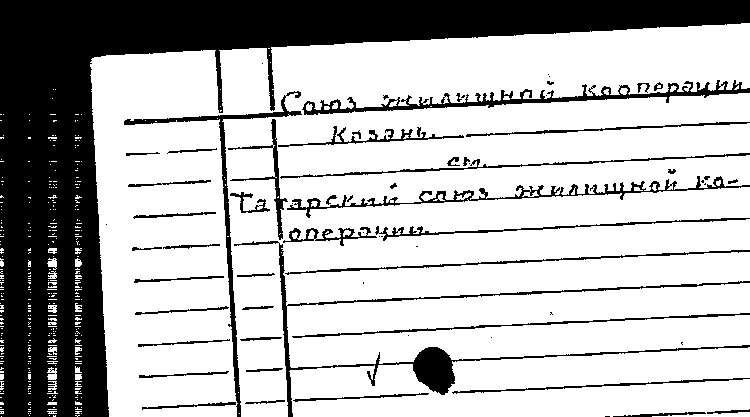 Союз жилищной кооперации
Казань.
см.
Татарский союз жилищной ко-
операции.